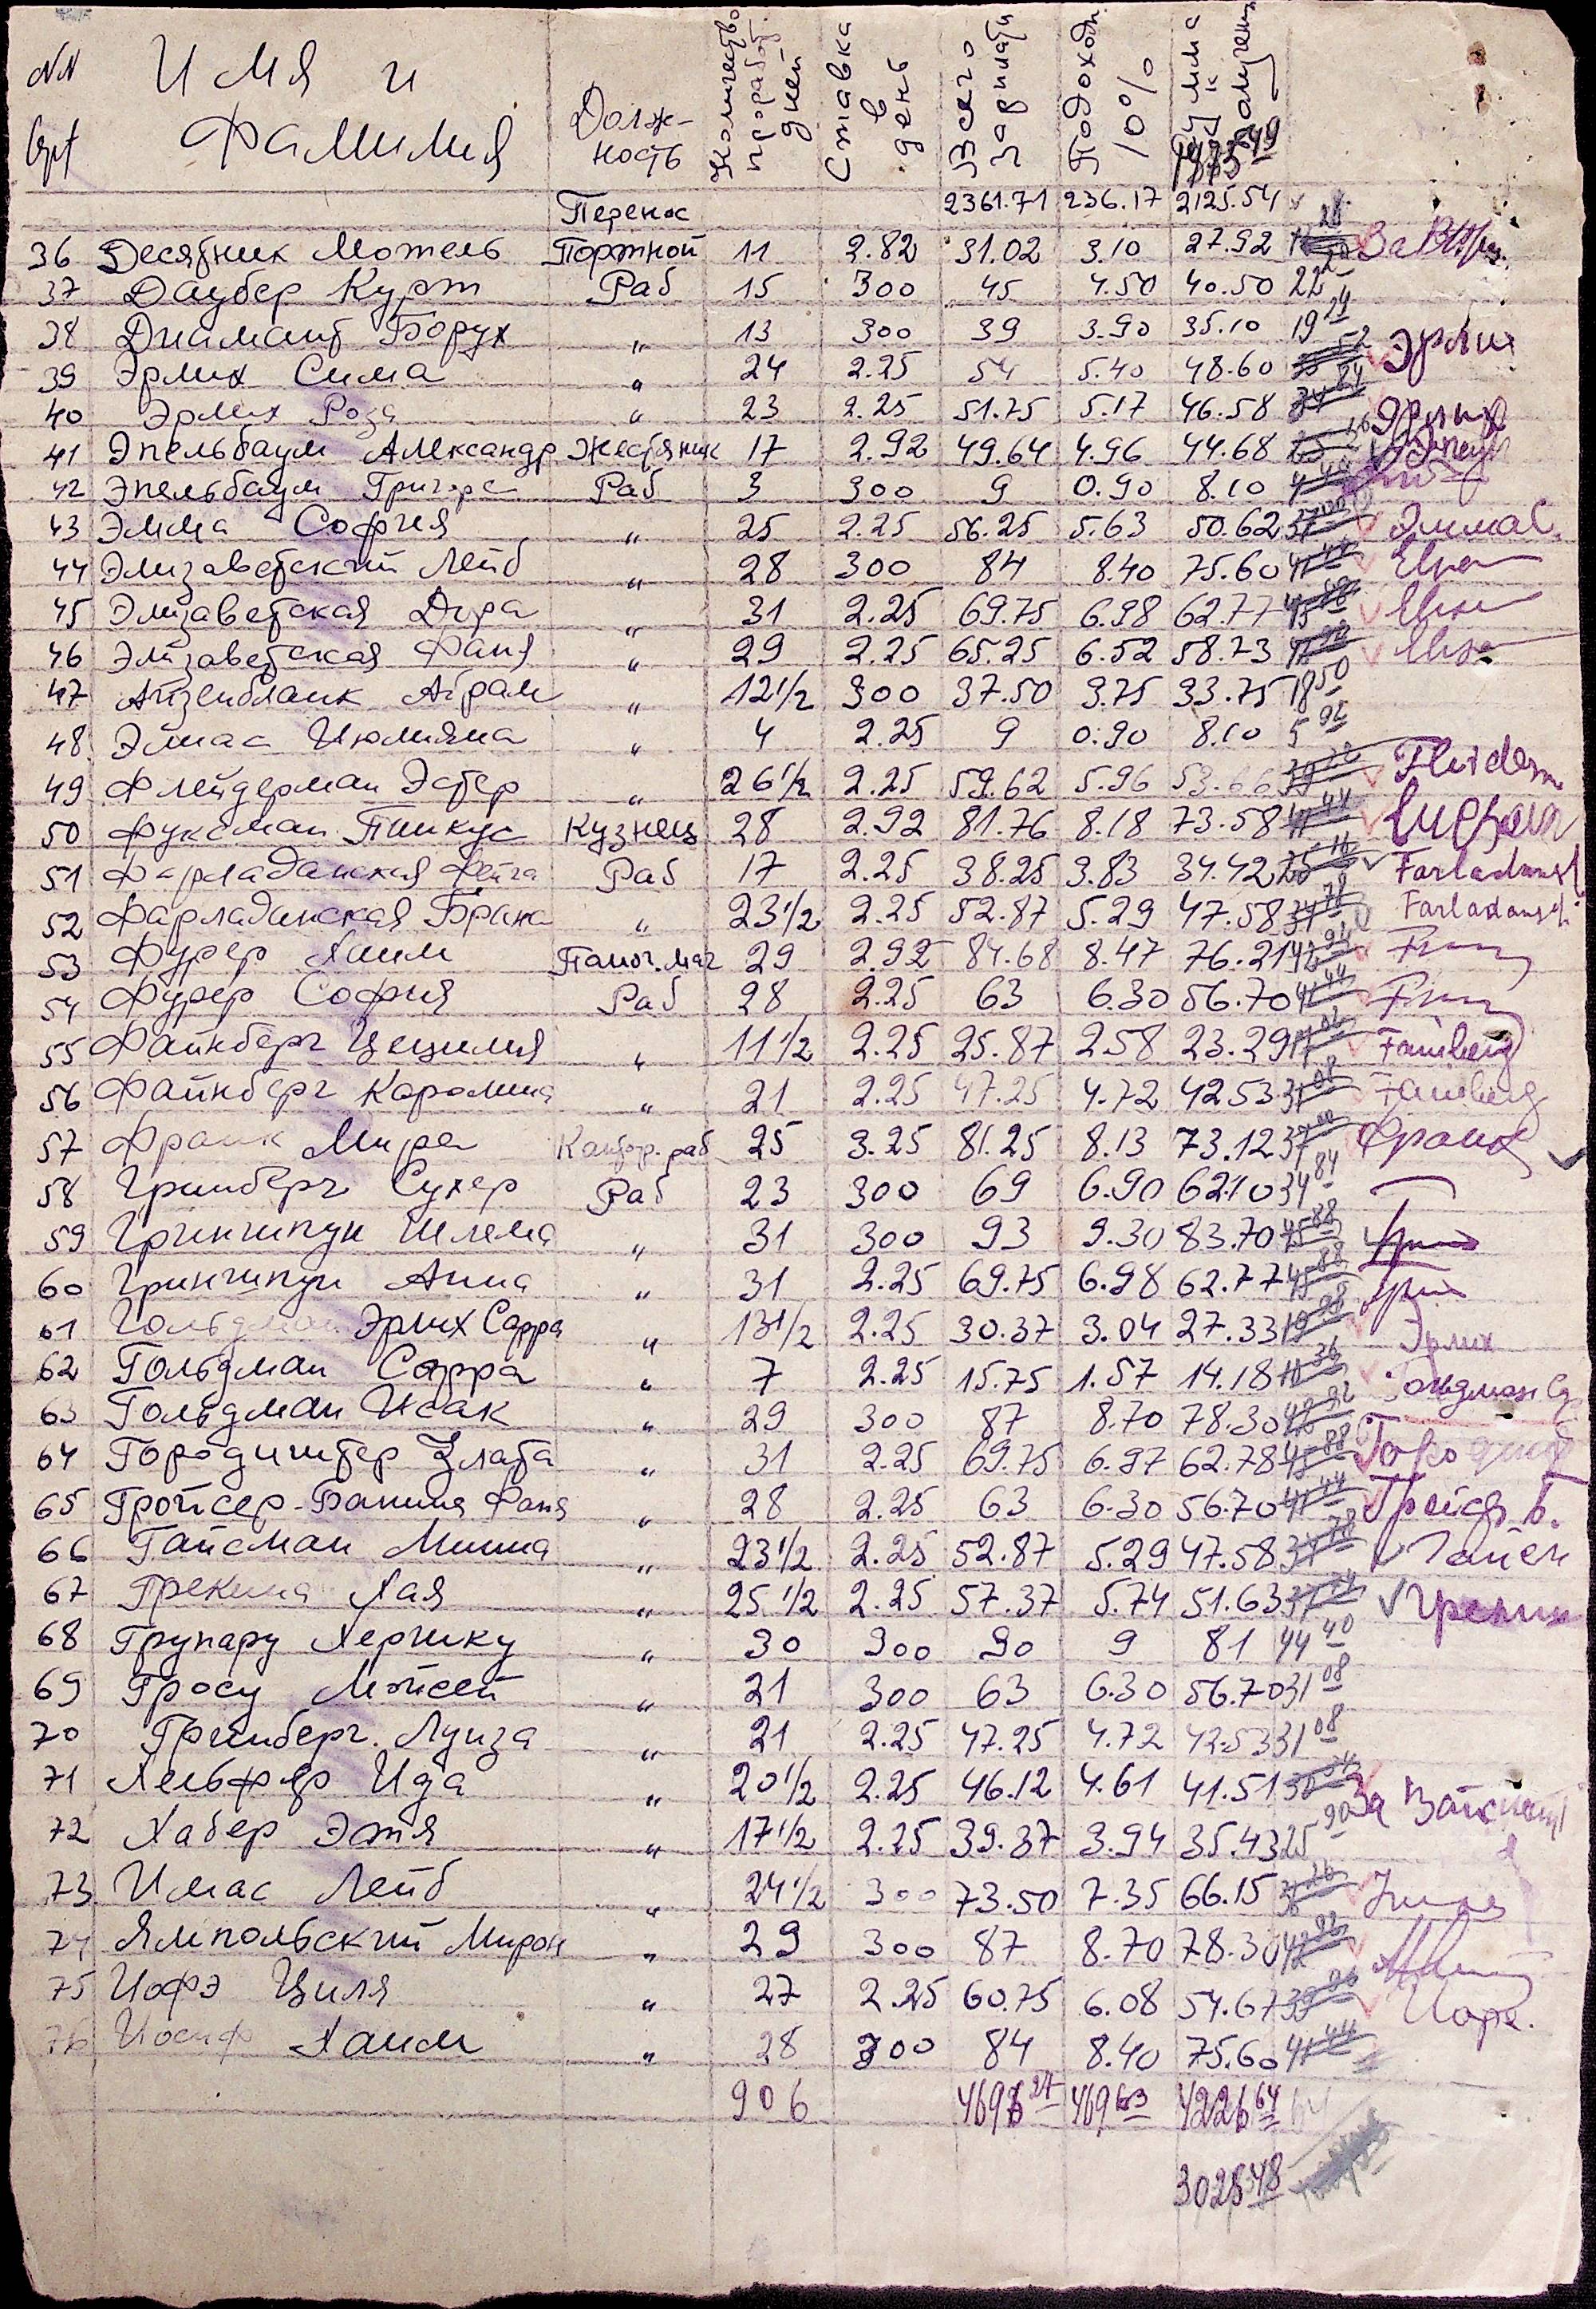 NN Имя и
Фамилия
Долж-
ность
Количество
проработ.
дней
Ставка
в
день
Всего
зарплаты
Подоходн.
10%
Сумма
к
получению
Перенос 2361.71 236.17 2125.54
36 Десятник Мотель Портной 11 2.82 31.02 3.10 27.92
37 Даубер Курт Раб 15 300 45 4.50 40.50 22
38 Диамант Борух " 13 300 39 3.90 35.10 19 24
39 Эрлих Сима " 24 2.25 54 5.40 48.60 Эрлих
40 Эрлих Роза " 23 2.25 51.75 5.17 46.58 Эрлих
41 Эпельбаум Александр Жестяник 17 2.92 49.64 4.96 44.68
42 Эпельбаум Григоре Раб 3 300 9 0.90 8.10
43 Эмма София " 25 2.25 56.25 5.63 50.62 Эмма С.
44 Элизаветский Лейб " 28 300 84 8.40 75.60 41 44
45 Элизаветская Дора " 31 2.25 69.75 6.98 62.77 45 88
46 Элизаветская Фаня " 29 2.25 65.25 6.52 58.73 42 92
47 Айзенбланк Абрам " 12 1/2 300 37.50 3.75 33.75 18 50
48 Эймас Июлияна " 4 2.25 9 0.90 8.10 5 92
49 Флейдерман Эстер " 26 1/2 2.25 59.62 5.96 53.66 39 22 Fleiderm
50 Фуксман Пинкус Кузнец 28 2.92 81.76 8.18 73.58 41 44
51 Фарладанская Фейга Раб 17 2.25 38.25 3.83 34.42 25 16 Farladansk
52 Фарладанская Брана " 23 1/2 2.25 52.87 5.29 47.58 34 78 Farladansch
53 Фурер Хаим Помог. маг 29 2.92 84.68 8.47 76.21 42 92
54 Фурер София Раб 28 2.25 63 6.30 56.70 41 44
55 Файнберг Цецилия " 11 1/2 2.25 25.87 258 23.29 17 02 Fainberg
56 Файнберг Каролина " 21 2.25 47.25 4.72 42.53 31 08 Fainberg
57 Франк Мира Контор. раб 25 3.25 81.25 8.13 73.12 37 00 Франк
58 Гринберг Сухер Раб 23 300 69 6.90 62.10 34 04
59 Гриншпун Шлема " 31 300 93 9.30 83.70 45 88
60 Гриншпун Анна " 31 2.25 69.75 6.98 62.77 45 88
61 Гольдман Эрлих Сарра " 13 1/2 2.25 30.37 3.04 27.33 19 98 Эрлих
62 Гольдман Сарра " 7 2.25 15.75 1.57 14.18 10 36 Гольдман С
63 Гольдман Исак " 29 300 87 8.70 78.30 42 92
64 Городиштер Злата " 31 2.25 69.75 6.97 62.78 45 88
65 Гройсер-Банина Фаня " 28 2.25 63 6.30 56.70 41 44 Гройсер Б.
66 Гайсман Минна " 23 1/2 2.25 52.87 5.29 47.58 34 78 Гайсм
67 Грекина Хая " 25 1/2 2.25 57.37 5.74 51.63 37 74 Грекин
68 Групару Хершку " 30 300 90 9 81 44 40
69 Гросу Мойсей " 21 300 63 6.30 56.70 31 08
70 Гринберг Луиза " 21 2.25 47.25 4.72 42.53 31 08
71 Хельфер Ида " 20 1/2 2.25 46.12 4.61 41.51 30 34 За
72 Хабер Этя " 17 1/2 2.25 39.37 3.94 35.43 25 90
73 Имас Лейб " 24 1/2 300 73.50 7.35 66.15 36 26
74 Ямпольский Мирон " 29 300 87 8.70 78.30 42 92
75 Иофэ Циля " 27 2.25 60.75 6.08 54.67 39 96 Иофе.
76 Иосиф Хаим " 28 300 84 8.40 75.60 41 44
906 4696 27 469 63 4226 64
3028 48